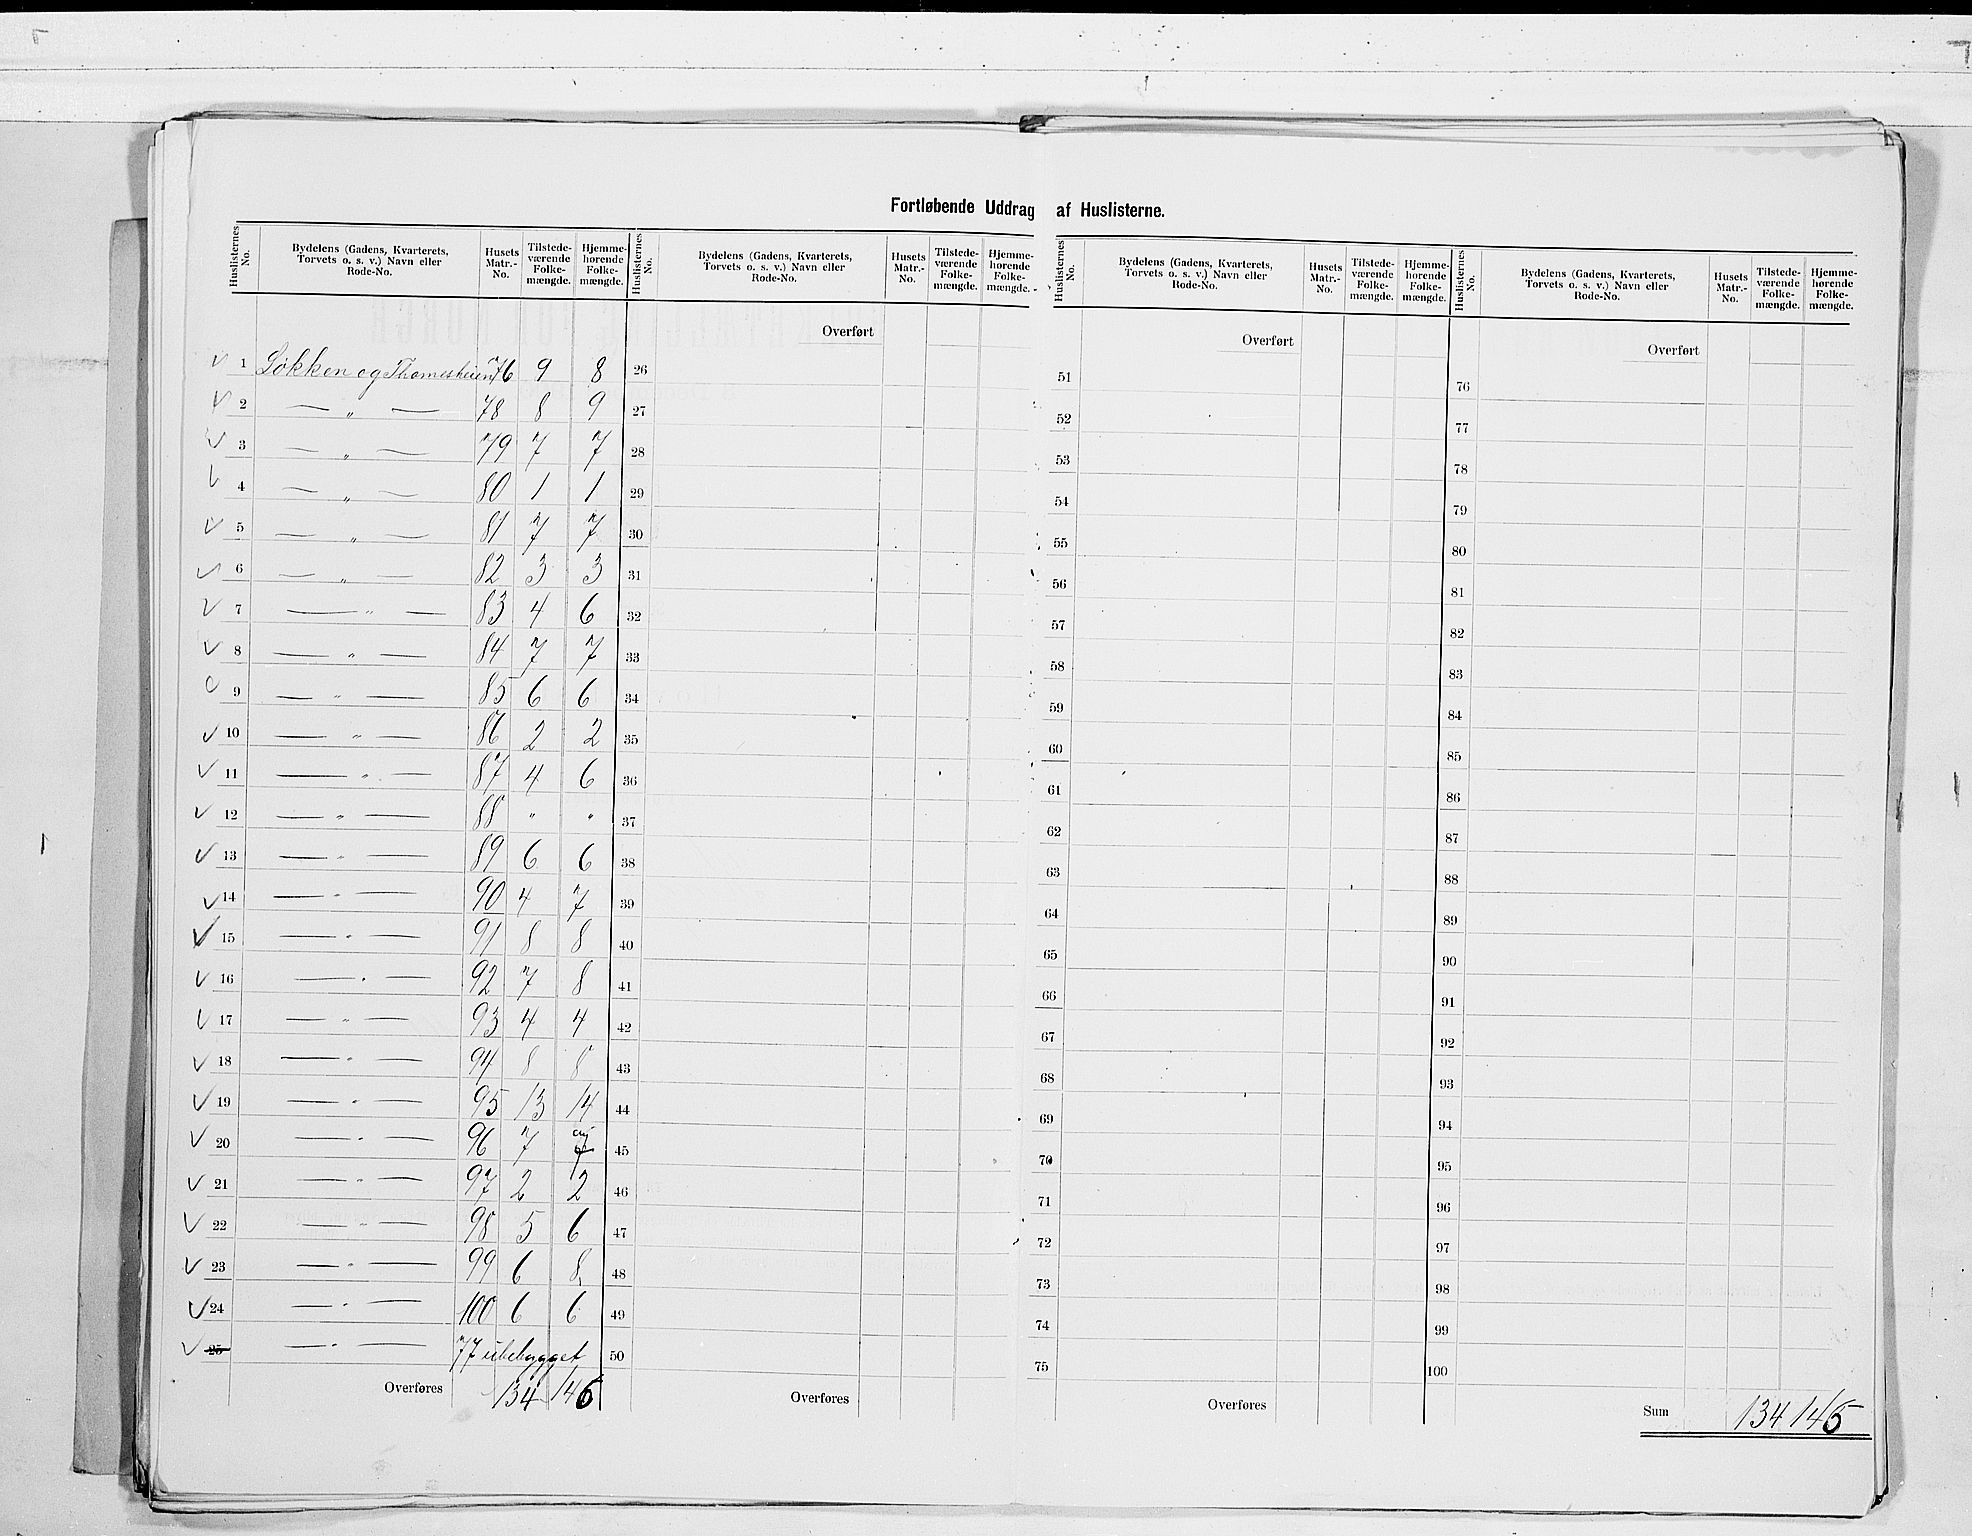 Fortløbende Uddrag af Huslisterne.
Huslisternes No. | Bydelens (Gadens, Kvarterets, Torvets o. s. v.) Navn eller Rode-No. | Husets Matr.-No. | Tilstedeværende Folkemængde. | Hjemmehørende Folkemængde. | Huslisternes No. | Bydelens (Gadens, Kvarterets, Torvets o. s. v.) Navn eller Rode-No. | Husets Matr.-No. | Tilstedeværende Folkemængde. | Hjemmehørende Folkemængde. | Huslisternes No. | Bydelens (Gadens, Kvarterets, Torvets o. s. v.) Navn eller Rode-No. | Husets Matr.-No. | Tilstedeværende Folkemængde. | Hjemmehørende Folkemængde. | Huslisternes No. | Bydelens (Gadens, Kvarterets, Torvets o. s. v.) Navn eller Rode-No. | Husets Matr.-No. | Tilstedeværende Folkemængde. | Hjemmehørende Folkemængde.
Overført Overført Overført
1 Løkken og Thomesheien 76 9 8 26 51 76
2 — „ — 78 8 9 27 52 77
3 — „ — 79 7 7 28 53 78
4 — „ — 80 1 1 29 54 79
5 — „ — 81 7 7 30 55 80
6 — „ — 82 3 3 31 56 81
7 — „ — 83 4 6 32 57 82
8 — „ — 84 7 7 33 58 83
9 — „ — 85 6 6 34 59 84
10 — „ — 86 2 2 35 60 85
11 — „ — 87 4 6 36 61 86
12 — „ — 88 „ „ 37 62 87
13 — „ — 89 6 6 38 63 88
14 — „ — 90 4 7 39 64 89
15 — „ — 91 8 8 40 65 90
16 — „ — 92 7 8 41 66 91
17 — „ — 93 4 4 42 67 92
18 — „ — 94 8 8 43 68 93
19 — „ — 95 13 14 44 69 94
20 — „ — 96 7 45 70 95
21 — „ — 97 2 2 46 71 96
22 — „ — 98 5 6 47 72 97
23 — „ — 99 6 8 48 73 98
24 — „ — 100 6 6 49 74 99
25 — „ — 77 ubebygget 50 75 100
Overføres 134 146 Overføres Overføres Sum 134 146